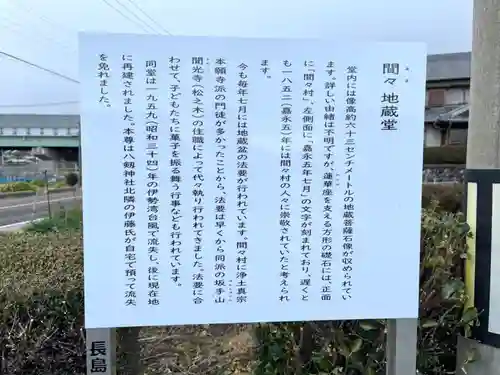 間々・地蔵堂
堂内には像高約六十三センチメートルの地蔵菩薩石像が収められてい
ます。詳しい由緒は不明ですが、蓮華座を支える方形の礎石には、正面
に「間々村」、左側面に「嘉永五年七月」の文字が刻まれており、遅くと
も一八五二（嘉永五）年には間々村の人々に崇敬されていたと考えられ
ます。
今も毎年七月には地蔵盆の法要が行われています。間々村に浄土真宗
本願寺派の門徒が多かったことから、法要は早くから同派の坂手山
聞光寺（松之木）の住職によって代々執り行われてきました。法要に合
わせて、子どもたちに菓子を振る舞う行事なども行われています。
同堂は一九五九（昭和三十四）年の伊勢湾台風で流失し、後に現在地
に再建されました。本尊は八剱神社北隣の伊藤氏が自宅で預って流失
を免れました。
長島